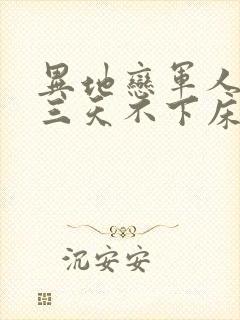 異地戀軍人
三天不下床
沉安安